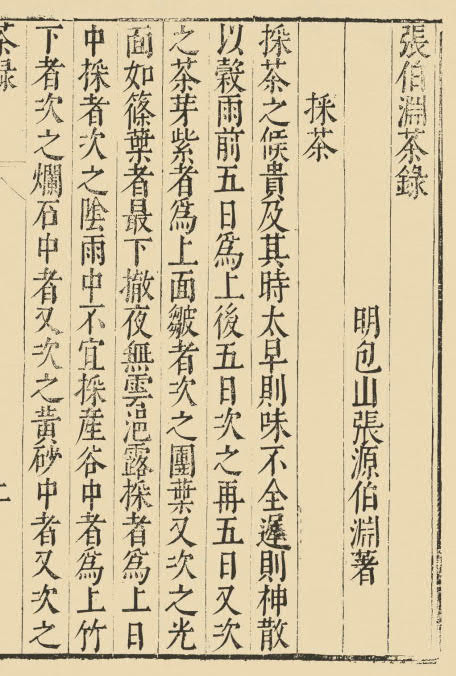 張伯淵茶錄
明包山張源伯淵著
採茶
採茶之候貴及其時太早則味不全遲則神散
以穀雨前五日爲上後五日次之再五日又次
之茶芽紫者爲上面皺者次之團葉又次之光
面如篠葉者最下撤夜無雲浥露採者爲上日
中採者次之陰雨中不宜採產谷中者爲上竹
下者次之爛石中者又次之黃砂中者又次之
茶録